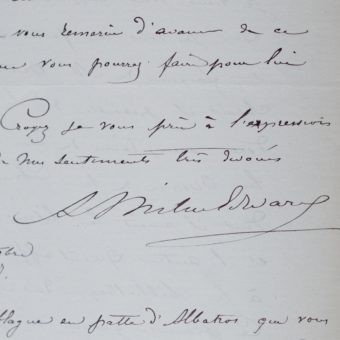 vous remercie d'avance de ce
que vous pourrez faire pour lui
Croyez je vous prie à l'expression
de mes sentiments très dévoués
A Milne Edwards
bre
blague en patte d'Albatros que vous